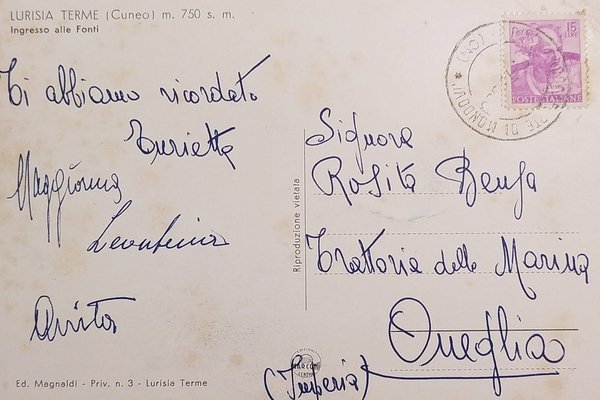 LURISIA TERME (Cuneo) m. 750 s. m.
Ingresso alle Fonti
Ti abbiamo ricordato
Turietta
Anita
Signora
Rosita Bensa
Trattoria della Marina
Oneglia
(Imperia)
Riproduzione vietata
15
LIRE
POSTE ITALIANE
DI MONDOVI
(CN)
Ed. Magnaldi - Priv. n. 3 - Lurisia Terme